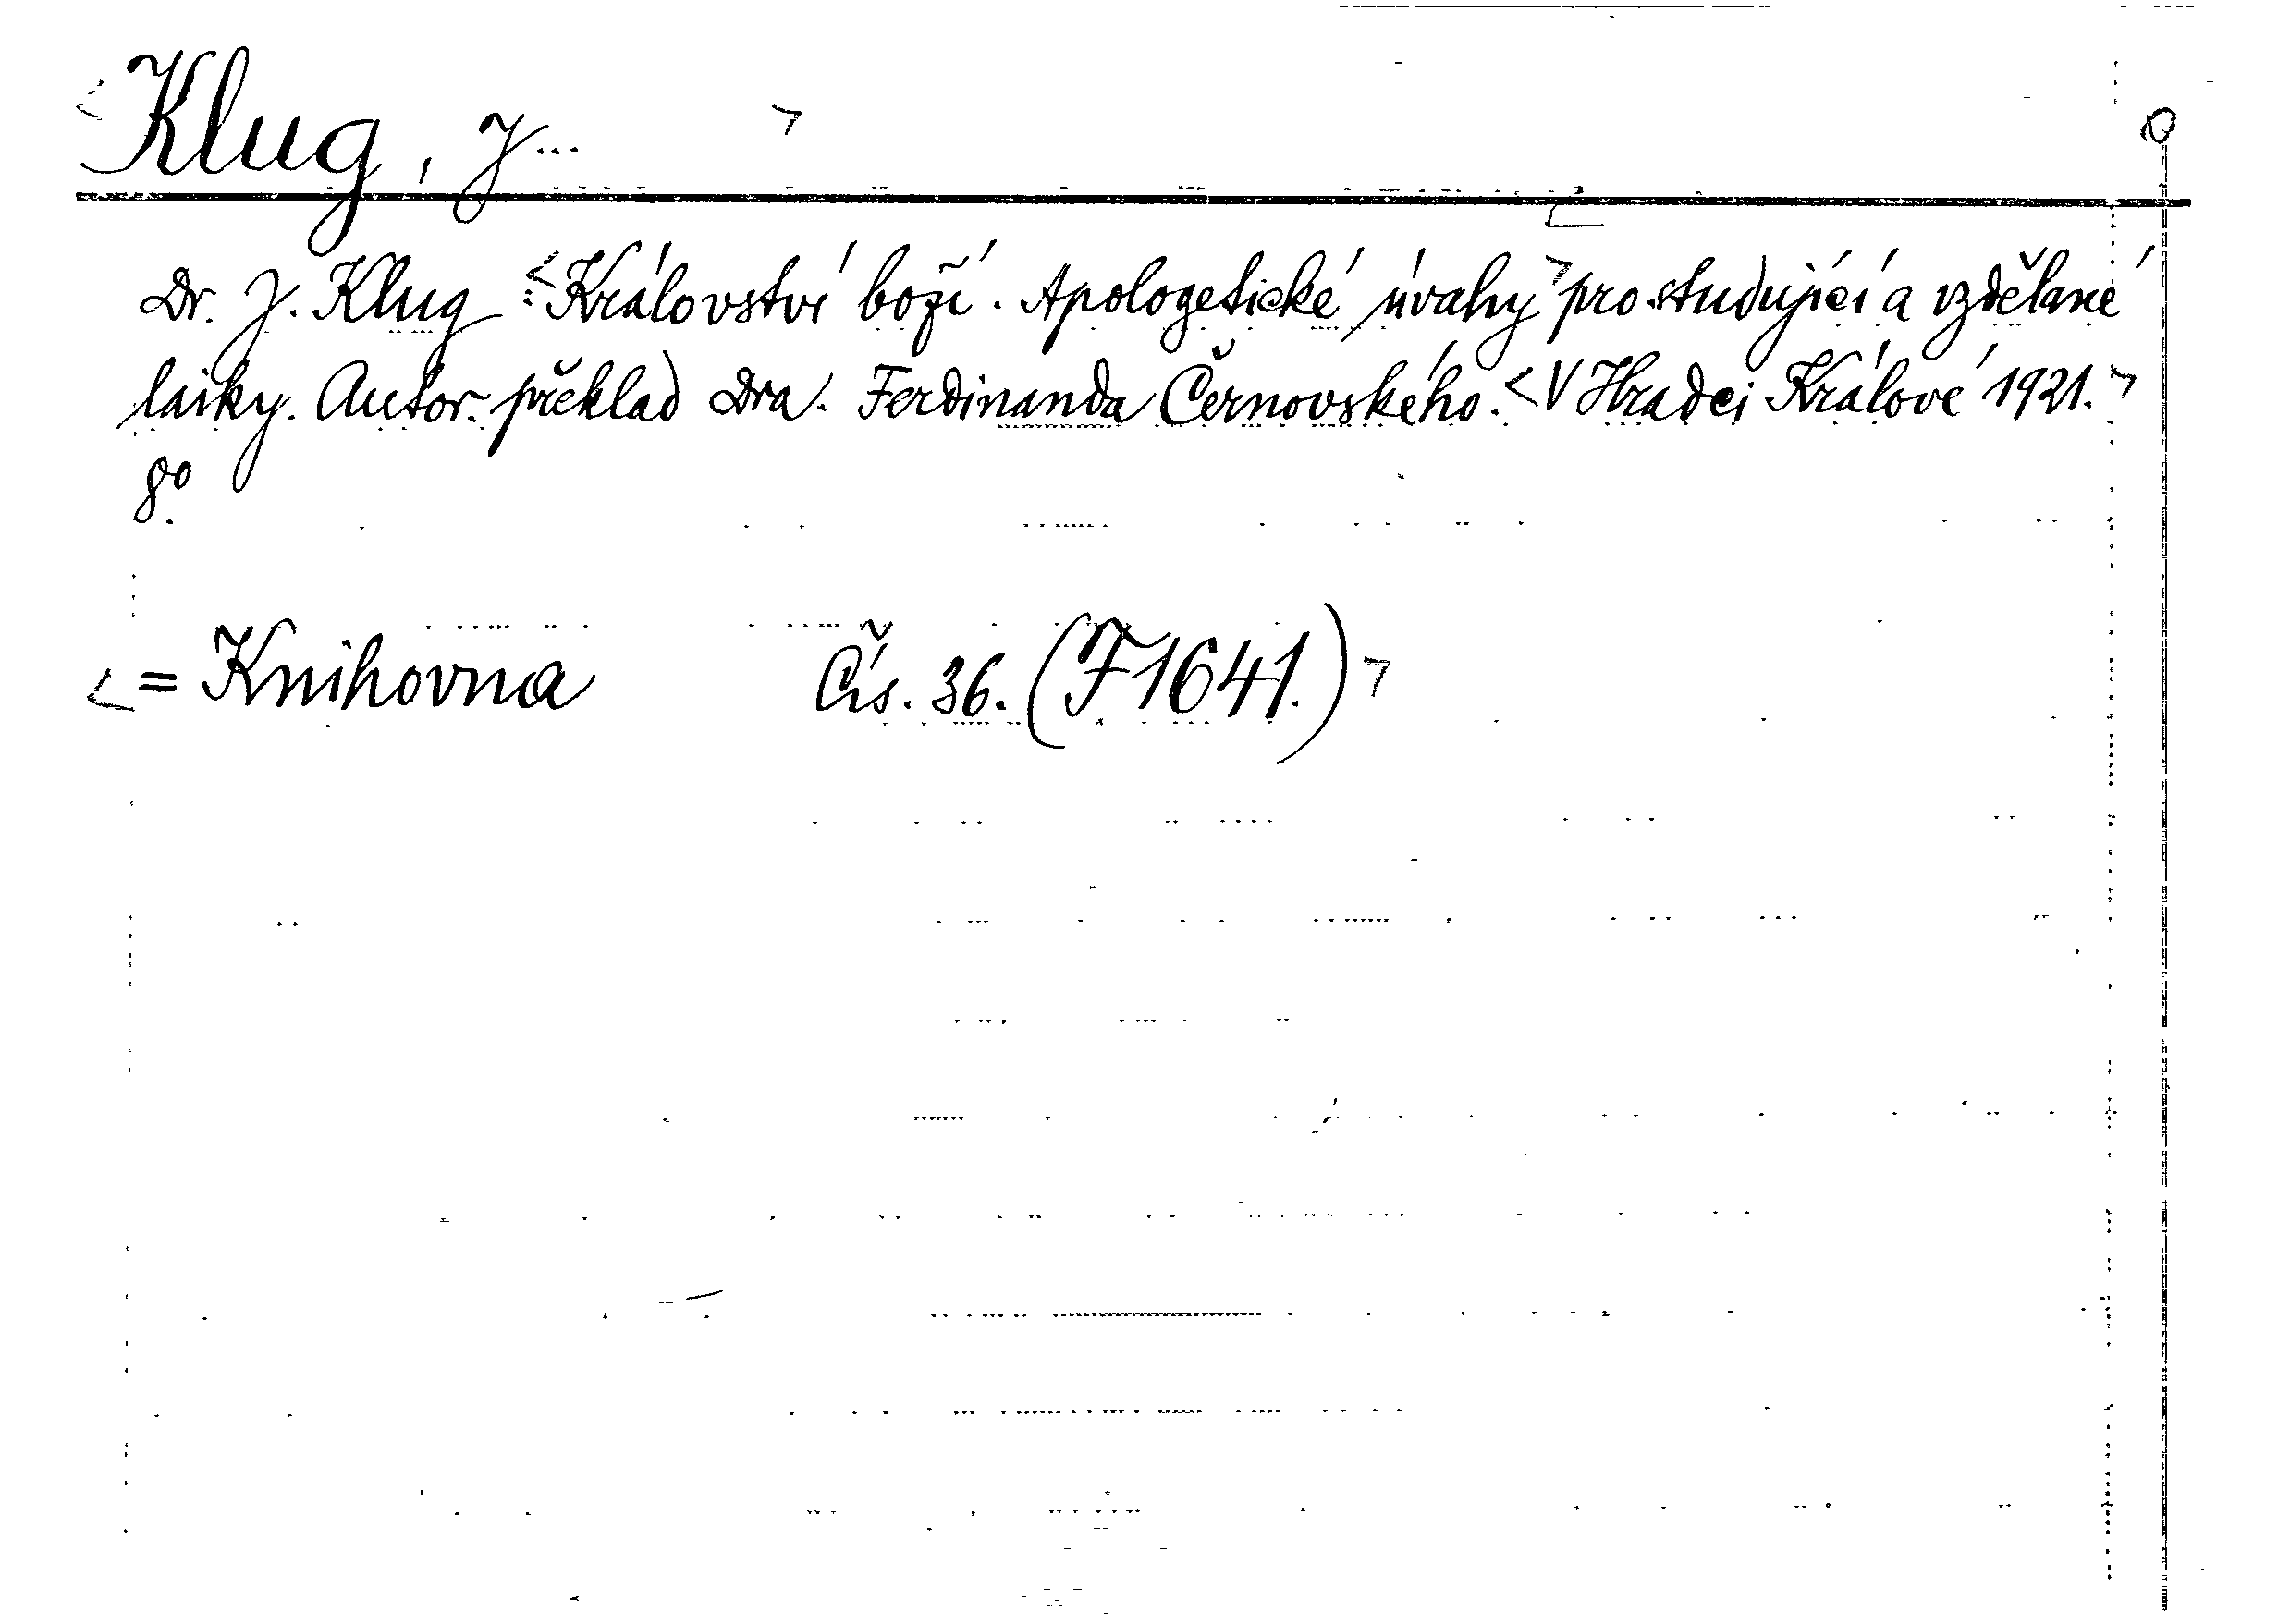 Klug, J...
Dr. J. Klug Království boží. Apologetické úvahy pro studující a vzdělané
laiky. Autor. překlad Dra. Ferdinanda Černovského. V Hradci Králové 1921.
8°.
= Knihovna Čís. 36. (F1641.)